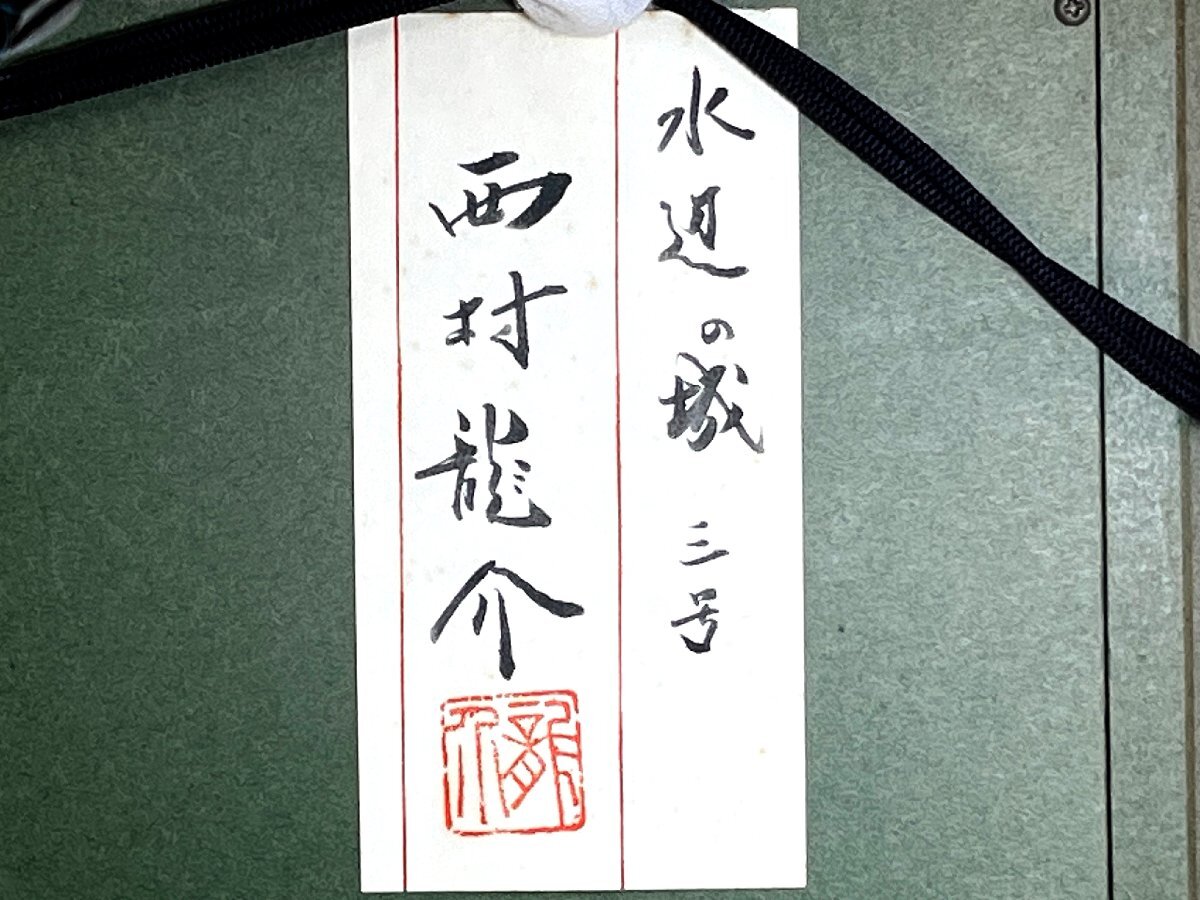 水辺の城 三号
西村龍介
龍介